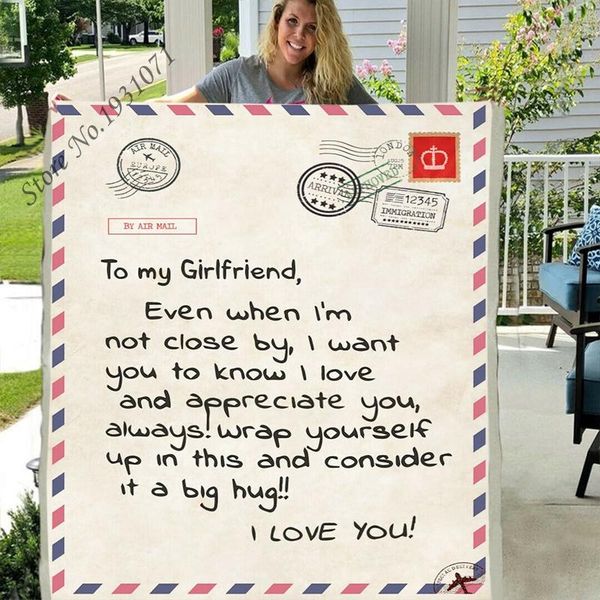 Store No.11931071
AIR MAIL
EUROPE
LONDON
ARRIVAL
12345
IMMIGRATION
BY AIR MAIL
To my Girlfriend,
Even when i'm
not close by, I want
you to know I love
and appreciate you,
always! wrap yourself
up in this and consider
it a big hug!!
I LOVE YOU!